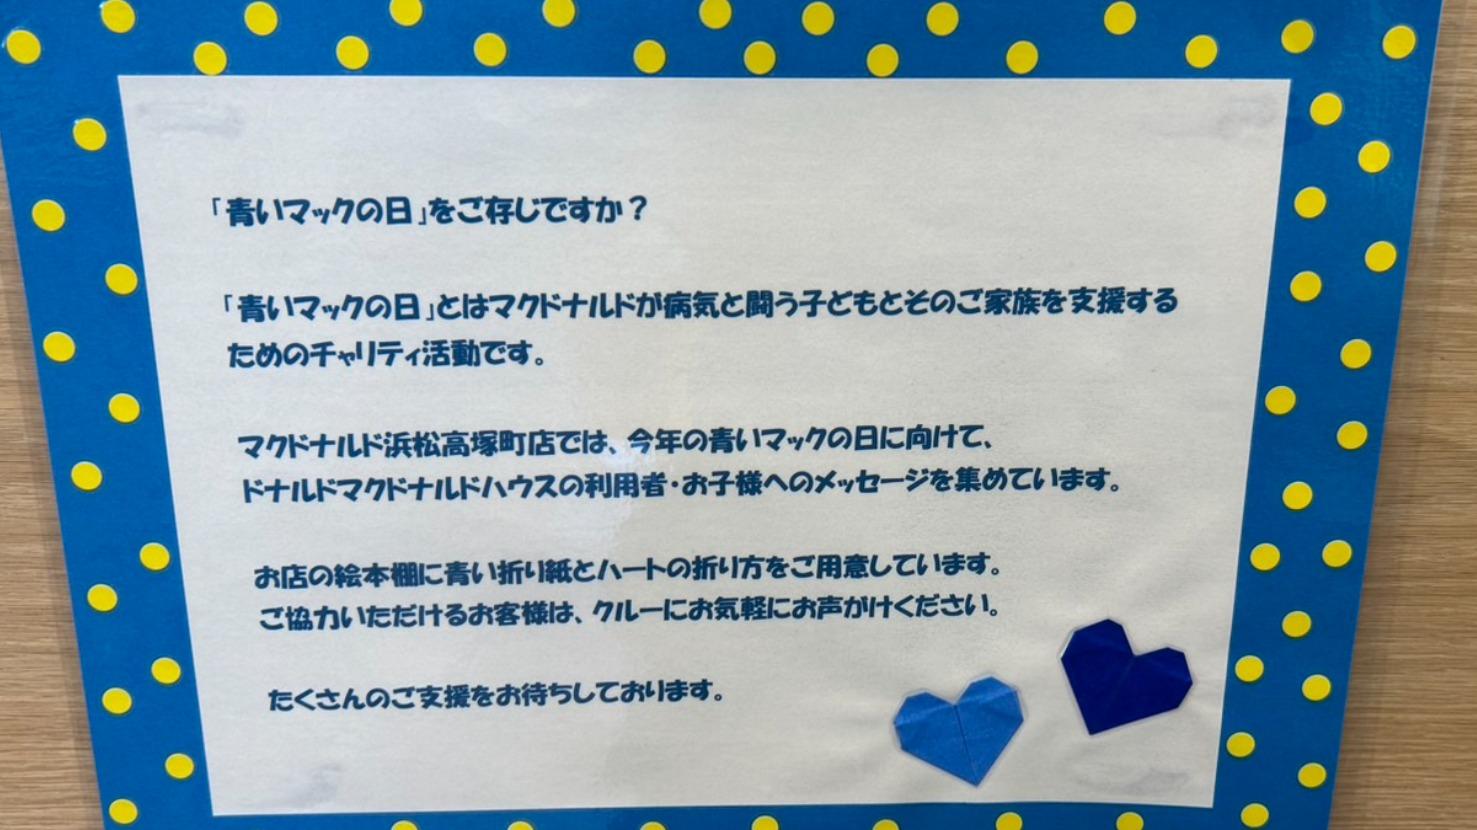 「青いマックの日」をご存じですか？
「青いマックの日」とはマクドナルドが病気と闘う子どもとそのご家族を支援する
ためのチャリティ活動です。
マクドナルド浜松高塚町店では、今年の青いマックの日に向けて、
ドナルドマクドナルドハウスの利用者・お子様へのメッセージを集めています。
お店の絵本棚に青い折り紙とハートの折り方をご用意しています。
ご協力いただけるお客様は、クルーにお気軽にお声がけください。
たくさんのご支援をお待ちしております。